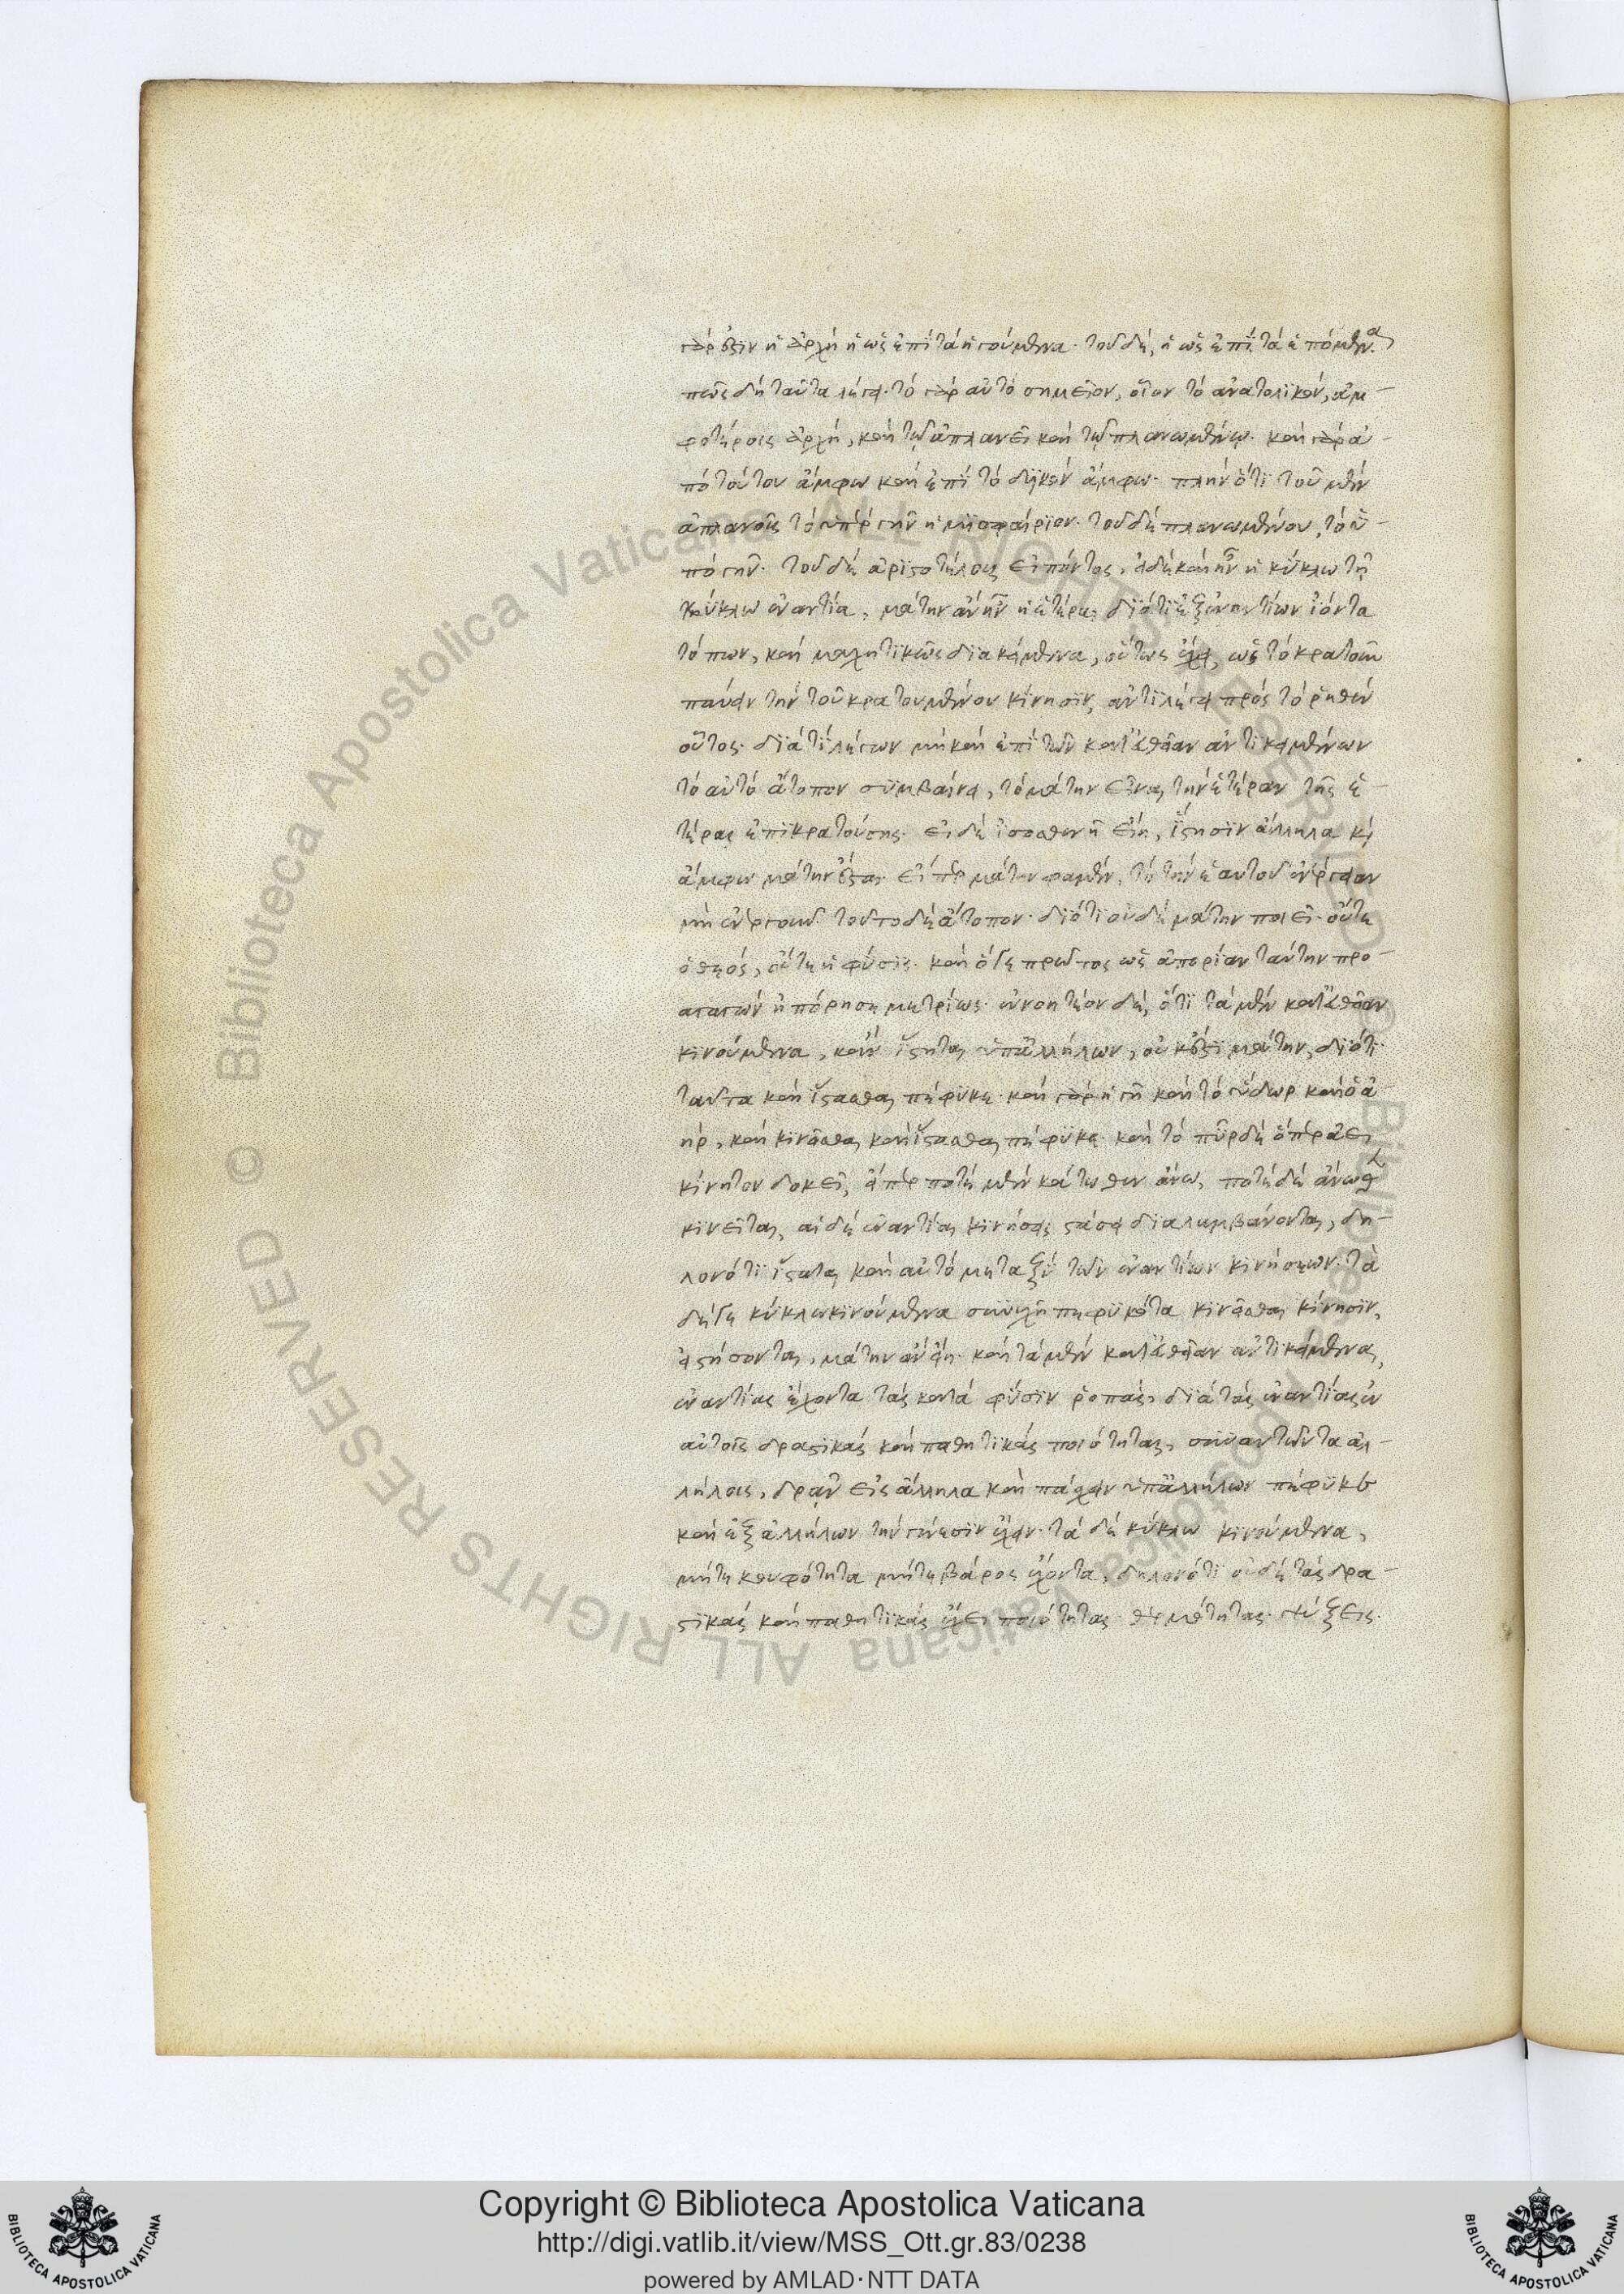 γάρ ἐστιν ἡ ἀρχὴ ἡ ὡς ἐπὶ τὰ ἡγούμενα· τοῦ δὲ, ἡ ὡς ἐπὶ τὰ ἑπόμενα
πῶς δὴ ταῦτα λέγει· τὸ γὰρ αὐτὸ σημεῖον, οἷον τὸ ἀνατολικὸν, ἀμ-
φοτέροις ἀρχὴ, καὶ τῷ ἀπλανεῖ καὶ τῷ πλανωμένῳ· καὶ γὰρ ἀ-
πὸ τούτου ἄμφω καὶ ἐπὶ τὸ δυτικὸν ἄμφω· πλὴν ὅτι τοῦ μὲν
ἀπλανοῦς τὸ ὑπὲρ γῆν ἡμισφαίριον· τοῦ δὲ πλανωμένου, τὸ ὑ-
πὸ γῆν· τοῦ δὲ ἀριστοτέλους εἰπόντος, εἰ δὲ καὶ ἦν ἡ κύκλω τῇ
κύκλω ἐναντία, μάτην ἂν ἦν ἡ ἑτέρα, διότι ἐξ ἐναντίων ἰόντα
τόπων, καὶ μαχητικῶς διακείμενα, οὕτως ἔχει, ὡς τὸ κρατοῦν
παύειν τὴν τοῦ κρατουμένου κίνησιν, ἀντιλέγει πρὸς τὸ ῥηθὲν
οὗτος· διατί λέγων μὴ καὶ ἐπὶ τῶν κατ' εὐθεῖαν ἀντικειμένων
τὸ αὐτὸ ἄτοπον συμβαίνει, τὸ μάτην εἶναι τὴν ἑτέραν τῆς ἑ-
τέρας ἐπικρατούσης· εἰ δὲ ἰσοσθενῆ εἴη, ἵστησιν ἄλληλα καὶ
ἄμφω μάτην ἔσται· εἴπερ μάτην φαμὲν, τὸ τὴν ἑαυτοῦ ἐνέργειαν
μὴ ἐνεργοῦν· τοῦτο δὲ ἄτοπον· διότι οὐδὲν μάτην ποιεῖ· οὔτε
ὁ θεός, οὔτε ἡ φύσις· καὶ ὅ γε πρῶτος ὡς ἀπορίαν ταύτην προ-
αγαγὼν ἠπόρησε μετρίως· ἐννοητέον δὲ, ὅτι τὰ μὲν κατ' εὐθεῖαν
κινούμενα, κἂν ἵστηται ὑπ' ἀλλήλων, οὐκ ἔστι μάτην, διότι
ταῦτα καὶ ἵστασθαι πέφυκε· καὶ γὰρ ἡ γῆ καὶ τὸ ὕδωρ καὶ ὁ ἀ-
ὴρ, καὶ κινεῖσθαι καὶ ἵστασθαι πέφυκε· καὶ τὸ πῦρ δὲ ὅπερ ἀει
κίνητον δοκεῖ, εἴπερ ποτὲ μὲν κάτωθεν ἄνω, ποτὲ δὲ ἄνωθεν
κινεῖται, αἱ δὲ ἐναντίαι κινήσεις στάσει διαλαμβάνονται, δη-
λονότι ἵσταται καὶ αὐτὸ μεταξὺ τῶν ἐναντίων κινήσεων· τὰ
δέ γε κύκλω κινούμενα συνεχῆ πεφυκότα κινεῖσθαι κίνησιν,
εἰ στήσονται, μάτην ἂν εἴη· καὶ τὰ μὲν κατ' εὐθεῖαν ἀντικείμενα,
ἐναντίας ἔχοντα τὰς κατὰ φύσιν ῥοπὰς, διὰ τὰς ἐναντίας ἐν
αὐτοῖς δραστικὰς καὶ παθητικὰς ποιότητας, συναντῶντα ἀλ-
λήλοις, δρᾶν εἰς ἄλληλα καὶ πάσχειν ὑπ' ἀλλήλων πέφυκε
καὶ ἐξ ἀλλήλων τὴν γένεσιν ἔχειν· τὰ δὲ κύκλω κινούμενα,
μήτε κουφότητα μήτε βάρος ἔχοντα, δηλονότι οὐδὲ τὰς δρα-
στικὰς καὶ παθητικὰς ἔχει ποιότητας· θερμότητας· ψύξεις·
© Biblioteca Apostolica Vaticana ALL RIGHTS RESERVED
© Biblioteca Apostolica Vaticana ALL RIGHTS RESERVED
BIBLIOTECA APOSTOLICA VATICANA
Copyright © Biblioteca Apostolica Vaticana
http://digi.vatlib.it/view/MSS_Ott.gr.83/0238
powered by AMLAD·NTT DATA
BIBLIOTECA APOSTOLICA VATICANA